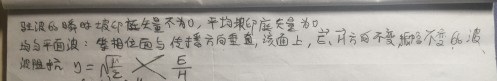 驻波的瞬时坡印廷矢量不为0，平均坡印廷矢量为0
均匀平面波：等相位面与传播方向垂直，该面上，E、H方向不变，振幅不变的波
波阻抗 y = √μ/ε E/H